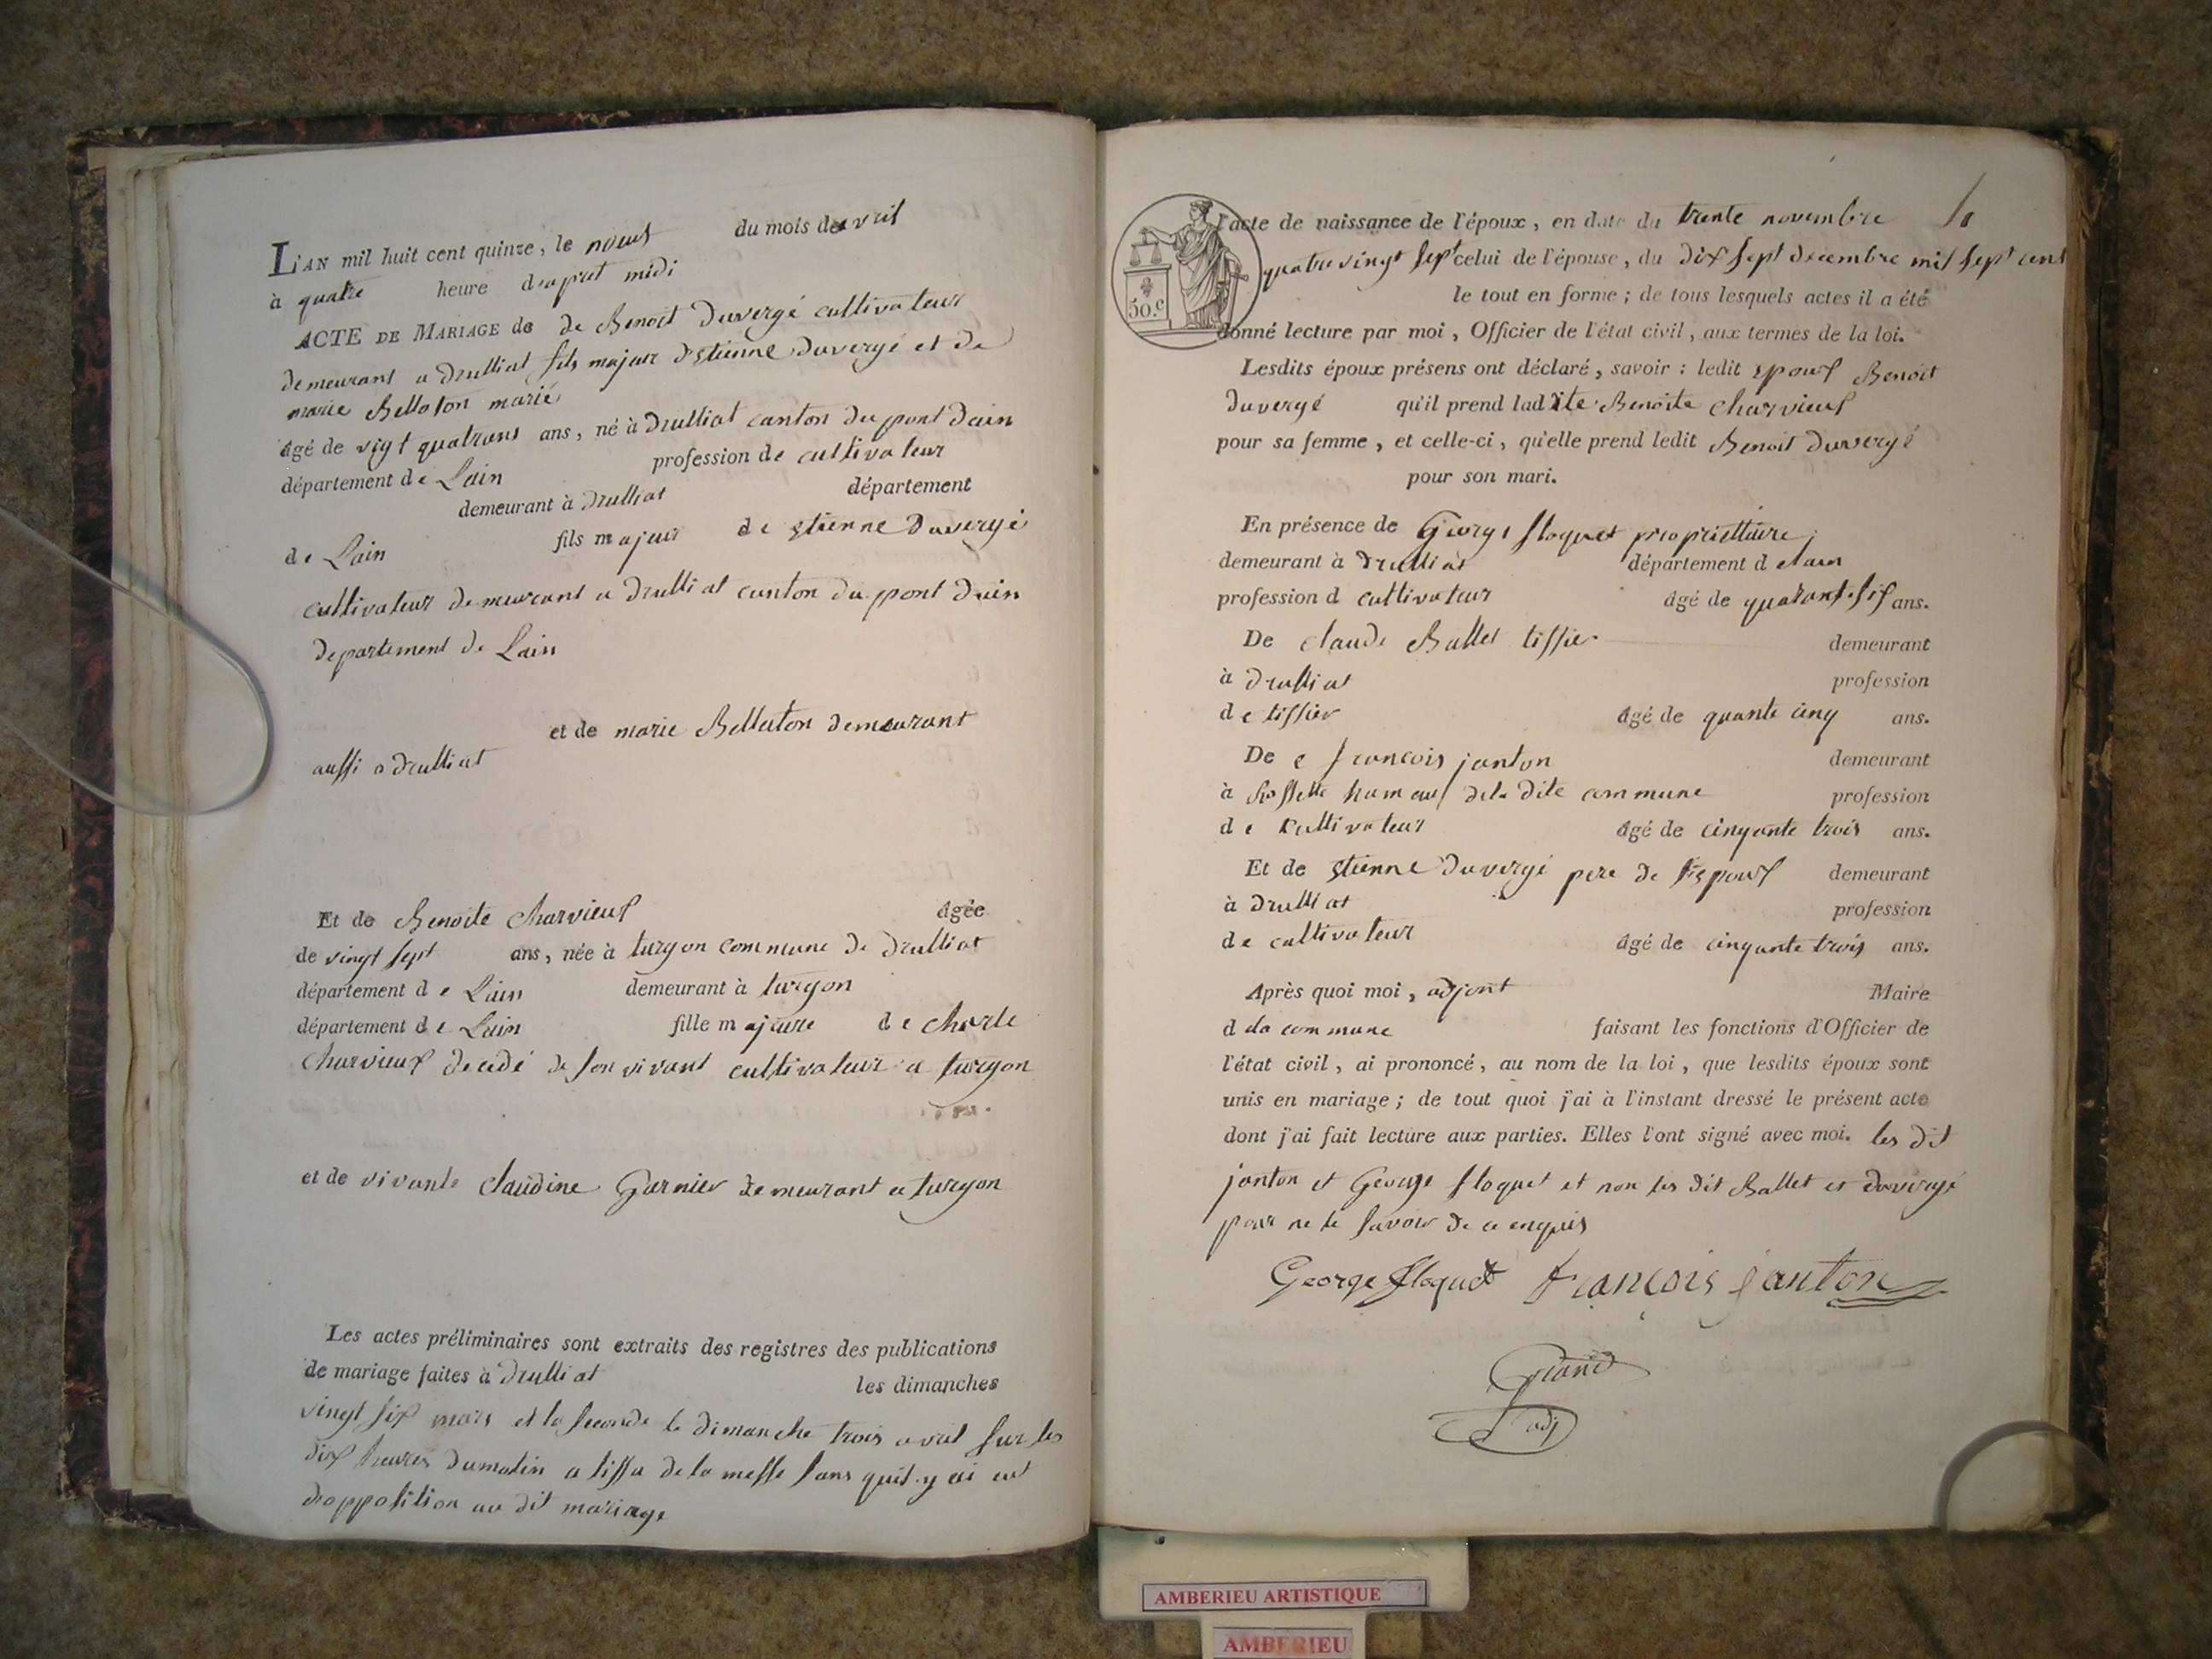 L'AN mil huit cent quinze, le neuf du mois de avril
à quatre heure d'apret midi
ACTE DE MARIAGE de de Benoit Duvergé cultivateur
demeurant a Drulliat fils majeur d'Etienne Duvergé et de
marie Bellaton marié
âgé de vigt quatrans ans, né à Drulliat canton du pont Dain
département de Lain profession de cultivateur
demeurant à Drulliat département
de Lain fils majeur de Etienne Duvergé
cultivateur demeurant a Drulliat canton du pont Dain
departement de Lain
et de marie Bellaton demeurant
aussi a drulliat
Et de Benoite Charvieux âgée
de vingt sept ans, née à turgon commune de Drulliat
département de Lain demeurant à turgon
département de Lain fille majeure de charle
Charvieux decedé de son vivant cultivateur a turgon
et de vivante Claudine Garnier demeurant a turgon
Les actes préliminaires sont extraits des registres des publications
de mariage faites à Drulliat les dimanches
vingt six mars et la seconde le dimanche trois avril sur les
dix heures dumatin a lissu de la messe sans quil y ai eu
dopposition au dit mariage
l'acte de naissance de l'époux, en date du trente novembre
quatre vingt sept celui de l'épouse, du dix sept decembre mil sept cent
50.c
le tout en forme; de tous lesquels actes il a été
donné lecture par moi, Officier de l'état civil, aux termes de la loi.
Lesdits époux présens ont déclaré, savoir: ledit epoux Benoit
duvergé qu'il prend ladite Benoite Charvieux
pour sa femme, et celle-ci, qu'elle prend ledit Benoit Duvergé
pour son mari.
En présence de George floquet propriettaire
demeurant à Drulliat département d elain
profession d cultivateur âgé de quarant six ans.
De claude Ballet tissier demeurant
à Drulliat profession
de tissier âgé de quante cinq ans.
De e francois janton demeurant
à hameau dela dite commune profession
de cultivateur âgé de cinquante trois ans.
Et de Etienne Duvergé pere de lepoux demeurant
à Drulliat profession
de cultivateur âgé de cinquante trois ans.
Après quoi moi, adjont Maire
d la commune faisant les fonctions d'Officier de
l'état civil, ai prononcé, au nom de la loi, que lesdits époux sont
unis en mariage; de tout quoi j'ai à l'instant dressé le présent acte
dont j'ai fait lecture aux parties. Elles l'ont signé avec moi. les dit
janton et George floquet et non les dit Ballet et duvergé
pour ne le savoir de ce enquis
George floquet francois janton
Grand
adj
AMBERIEU ARTISTIQUE
AMBERIEU